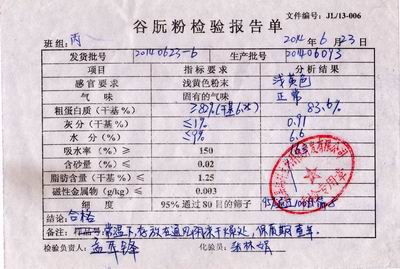 文件编号: JL/13-006
谷朊粉检验报告单
班组: 丙 2014年6月23日
发货批号 20140623-6 生产批号 201406093
项目 指标要求 分析结果
感官要求 浅黄色粉末 浅黄色
气 味 固有的气味 正常
粗蛋白质(干基%) ≥82%(干基6.25) 83.6%
灰分(干基%) ≤1% 0.91
水 分(%) ≤9% 6.6
吸水率(%)≥ 150
含砂量(%)≤ 0.02
脂肪含量(%)≤ 1.25
磁性金属物(g/kg)≤ 0.003
细 度 95%通过80目的筛子
结论: 合格
备注: 样品号 常温下存放在通风阴凉干燥处,保质期壹年.
检验负责人: 孟亚锋 化验员: 张林娟